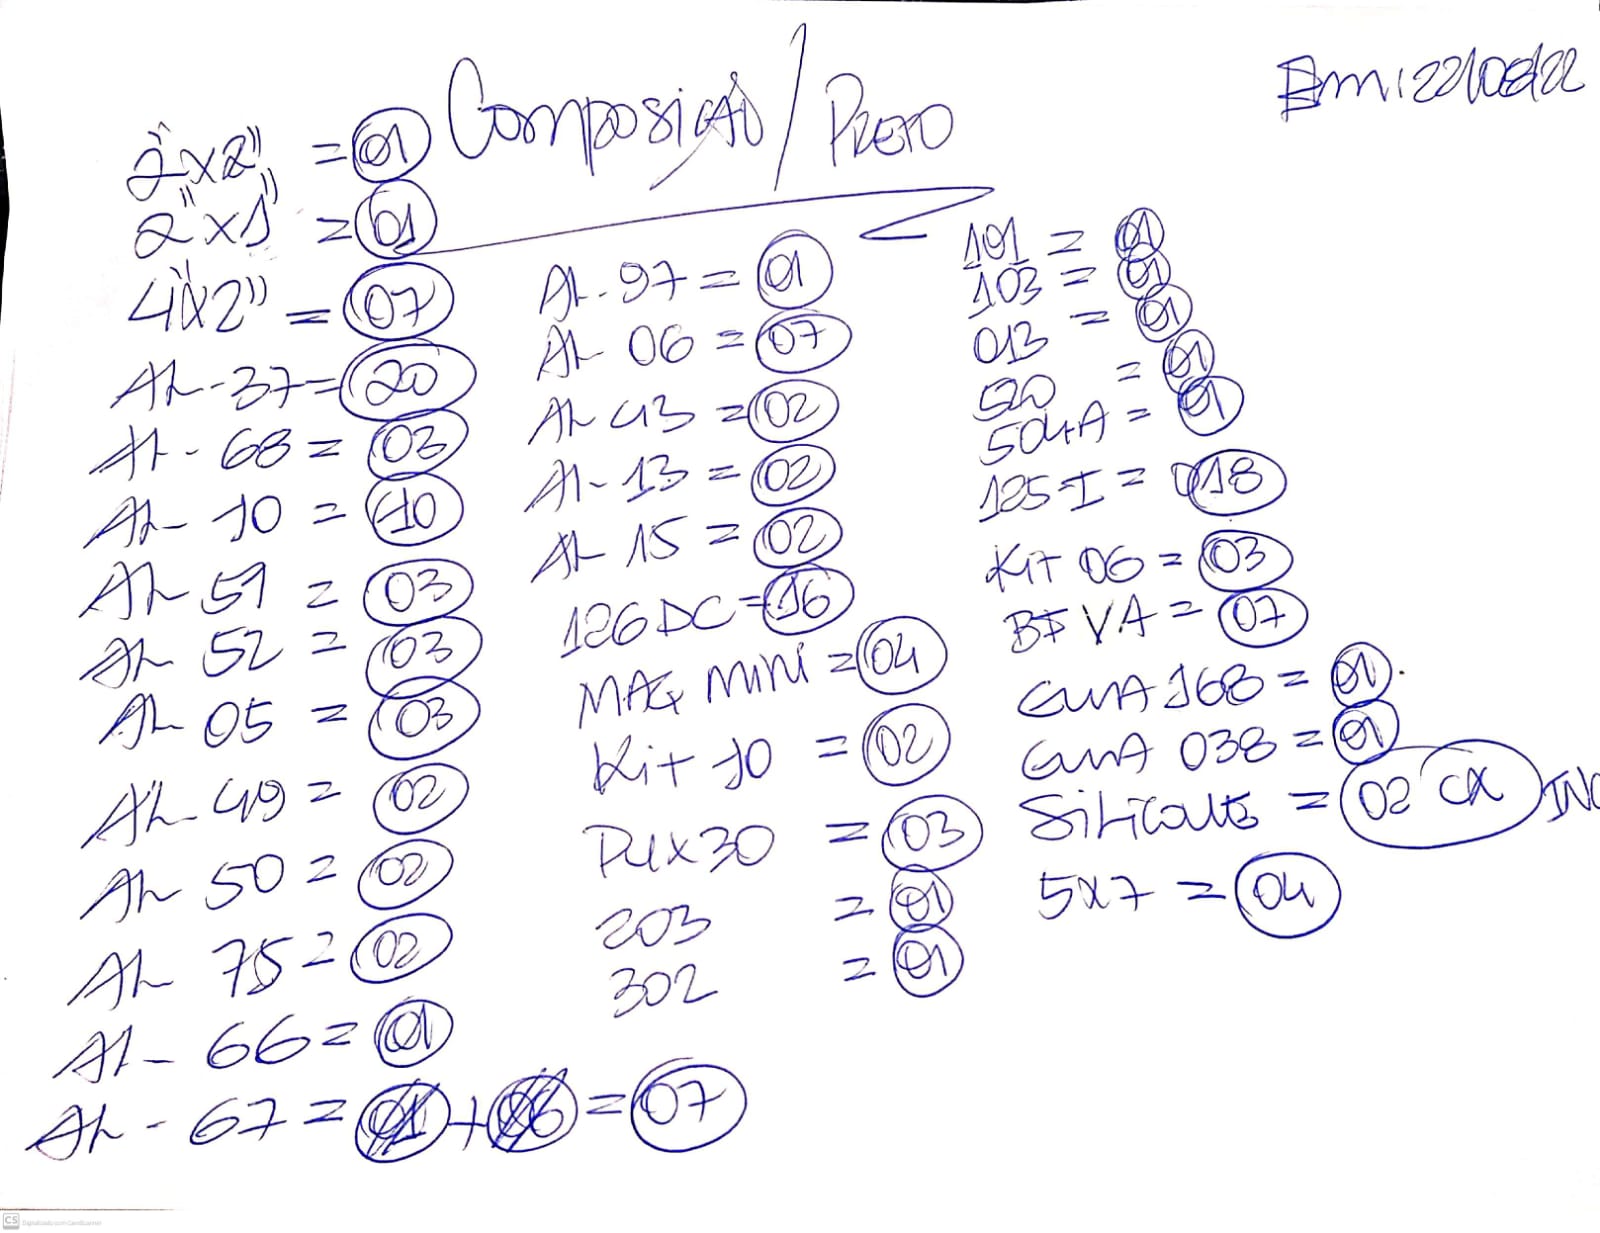 Composição / Preto
Em: 22/08/22
2"x2" = 01
2"x1" = 01
4"x2" = 07
AL-37 = 20
AL-68 = 03
AL-10 = 10
AL 59 = 03
AL 52 = 03
AL 05 = 03
AL-49 = 02
AL 50 = 02
AL 75 = 02
AL-66 = 01
AL-67 = 01 + 06 = 07
AL-97 = 01
AL 06 = 07
AL 43 = 02
AL-13 = 02
AL 15 = 02
126 DC = 16
MAQ MiNi = 04
Kit 10 = 02
PUx30 = 03
203 = 01
302 = 01
101 = 01
103 = 01
013 = 01
520 = 01
504A = 01
125-I = 018
Kit 06 = 03
VA = 07
GUIA 168 = 01
GUIA 038 = 01
SiLicone = 02 CX INC
5x7 = 04
CS Digitalizado com CamScanner